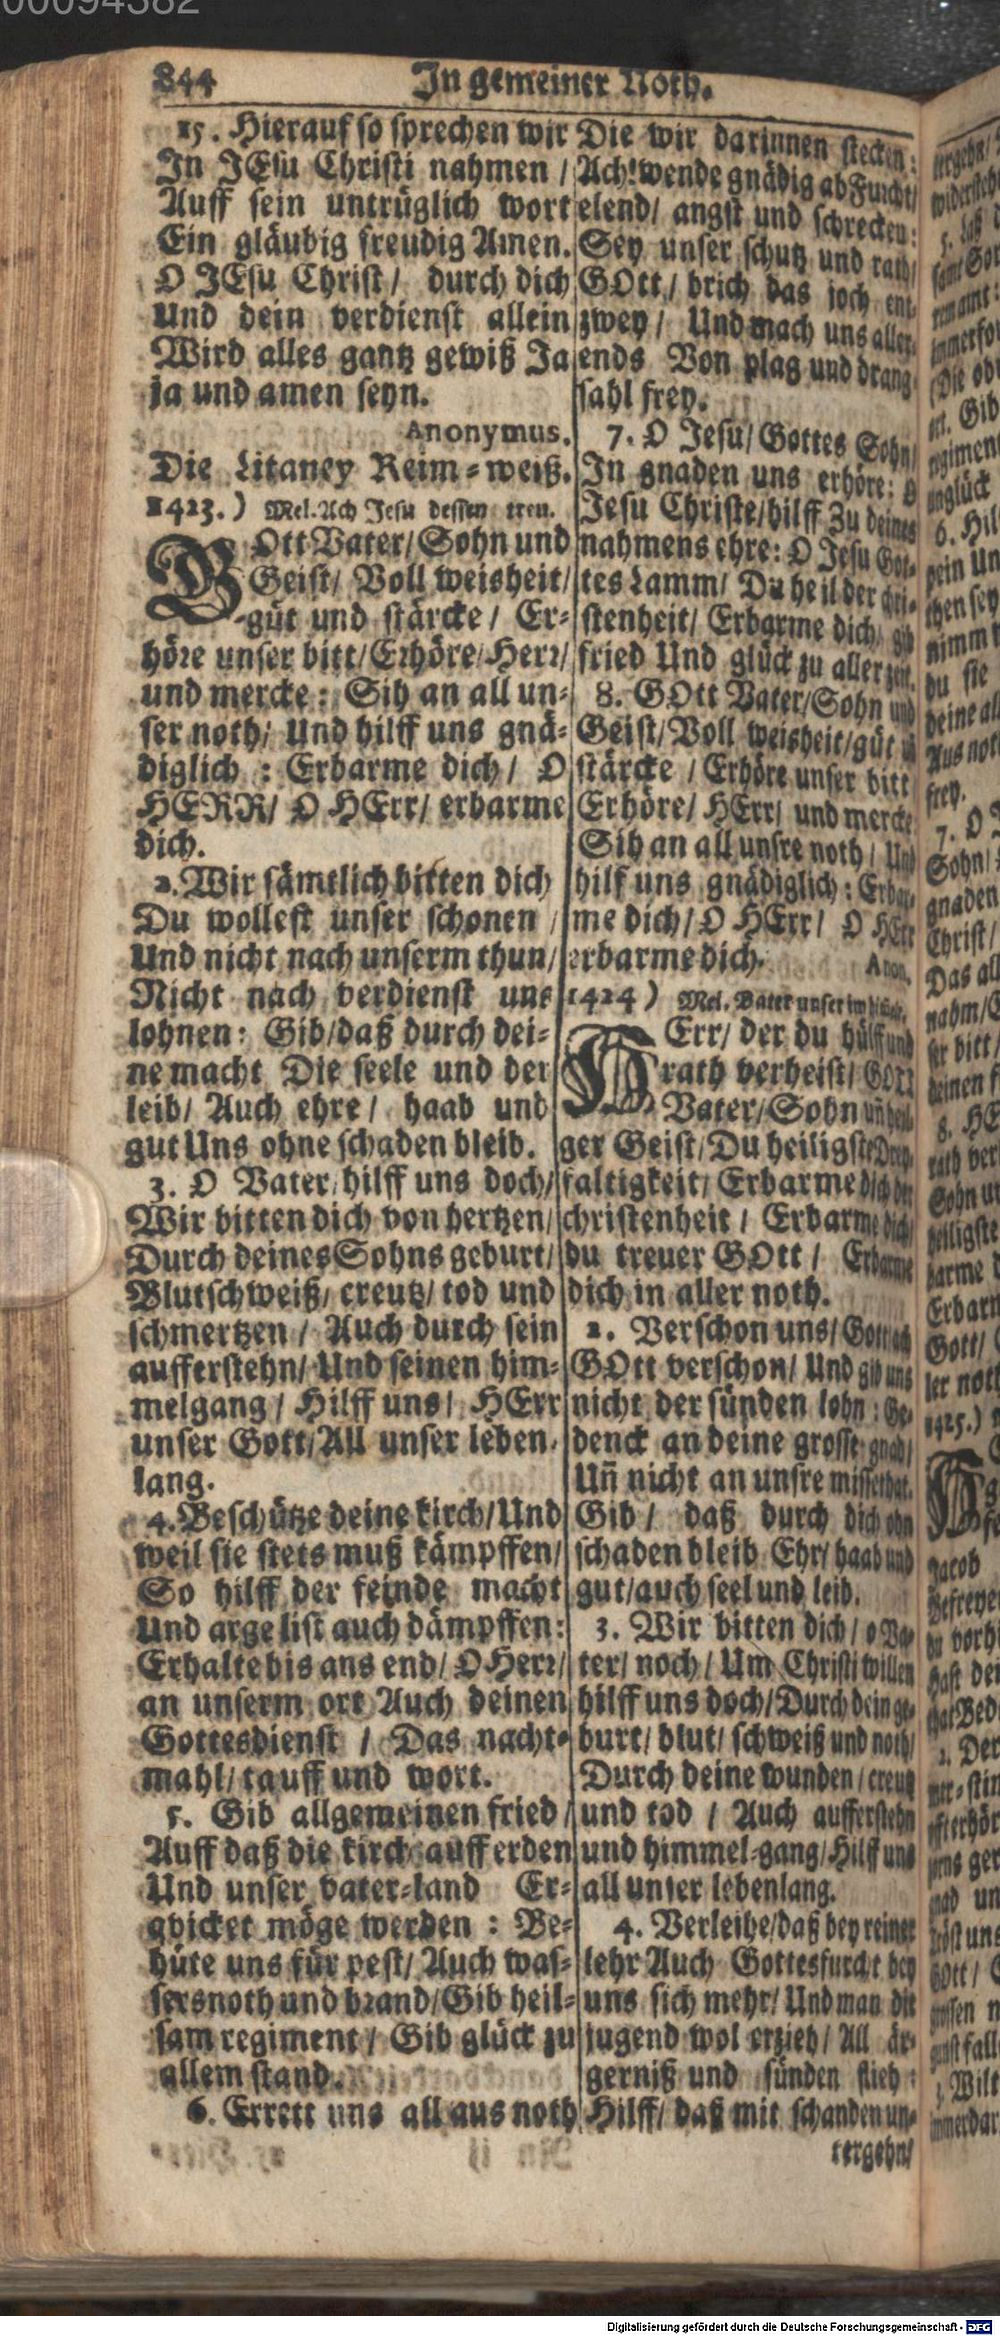 00094382
844 In gemeiner Noth.
15. Hierauf so sprechen wir
In JEsu Christi nahmen /
Auff sein untrüglich wort
Ein gläubig freudig Amen.
O JEsu Christ / durch dich
Und dein verdienst allein
Wird alles gantz gewiß Ja
ja und amen seyn.
Anonymus.
Die Litaney Reim-weiß.
1423.) Mel. Ach Jesu dessen treu.
GOtt Vater/ Sohn und
Geist/ Voll weisheit/
güt und stärcke / Er-
höre unser bitt/ Erhöre/ Herr/
und mercke: Sih an all un-
ser noth/ Und hilff uns gnä-
diglich : Erbarme dich/ O
HERR/ O HErr/ erbarme
dich.
2. Wir sämtlich bitten dich
Du wollest unser schonen /
Und nicht nach unserm thun/
Nicht nach verdienst uns
lohnen: Gib/ daß durch dei-
ne macht Die seele und der
leib/ Auch ehre / haab und
gut Uns ohne schaden bleib.
3. O Vater/ hilff uns doch/
Wir bitten dich von hertzen/
Durch deines Sohns geburt/
Blutschweiß/ creutz/ tod und
schmertzen / Auch durch sein
aufferstehn/ Und seinen him-
melgang / Hilff uns / HErr
unser Gott/ All unser leben-
lang.
4. Beschütze deine kirch/ Und
weil sie stets muß kämpffen/
So hilff der feinde macht
Und arge list auch dämpffen:
Erhalte bis ans end/ O Herr/
an unserm ort Auch deinen
Gottesdienst / Das nacht-
mahl/ tauff und wort.
5. Gib allgemeinen fried /
Auff daß die kirch auff erden
Und unser vater-land Er-
qvicket möge werden : Be-
hüte uns für pest/ Auch was-
sersnoth und brand/ Gib heil-
sam regiment / Gib glück zu
allem stand.
6. Errett uns all aus noth
Die wir darinnen stecken:
Ach! wende gnädig ab Furcht/
elend/ angst und schrecken:
Sey unser schutz und rath/
GOtt / brich das joch ent-
zwey / Und mach uns aller-
ends Von plag und drang-
sahl frey.
7. O Jesu/ Gottes Sohn/
In gnaden uns erhöre: O
Jesu Christe/ hilff Zu deines
nahmens ehre: O Jesu Got-
tes Lamm/ Du heil der chri-
stenheit/ Erbarme dich/ gib
fried Und glück zu aller zeit.
8. GOtt Vater/ Sohn und
Geist/ Voll weisheit/ güt uñ
stärcke / Erhöre unser bitt
Erhöre/ HErr/ und mercke
Sih an all unsre noth / Und
hilf uns gnädiglich: Erbar-
me dich/ O HErr/ O HErr
erbarme dich. Anon.
1424) Mel. Vater unser im himelr.
HErr/ der du hülff und
rath verheist/ GOTT
Vater/ Sohn uñ heil-
ger Geist/ Du heiligste Drey-
faltigkeit/ Erbarme dich der
christenheit / Erbarme dich/
du treuer GOtt / Erbarme
dich in aller noth.
2. Verschon uns/ Gott/ ach
GOtt verschon/ Und gib uns
nicht der sünden lohn: Ge-
denck an deine grosse gnad/
Uñ nicht an unsre missethat.
Gib / daß durch dich ohn
schaden bleib Ehr/ haab und
gut/ auch seel und leib.
3. Wir bitten dich / o Va-
ter/ noch / Um Christi willen
hilff uns doch/ Durch dein ge-
burt/ blut/ schweiß und noth/
Durch deine wunden / creutz
und tod / Auch aufferstehn
und himmel-gang/ Hilff uns
all unser lebenlang.
4. Verleihe/ daß bey reiner
lehr Auch Gottesfurcht bey
uns sich mehr/ Und man die
jugend wol erzieh/ All är-
gerniß und sünden flieh:
Hilff/ daß mit schanden un-
tergehn/
Digitalisierung gefördert durch die Deutsche Forschungsgemeinschaft - DFG